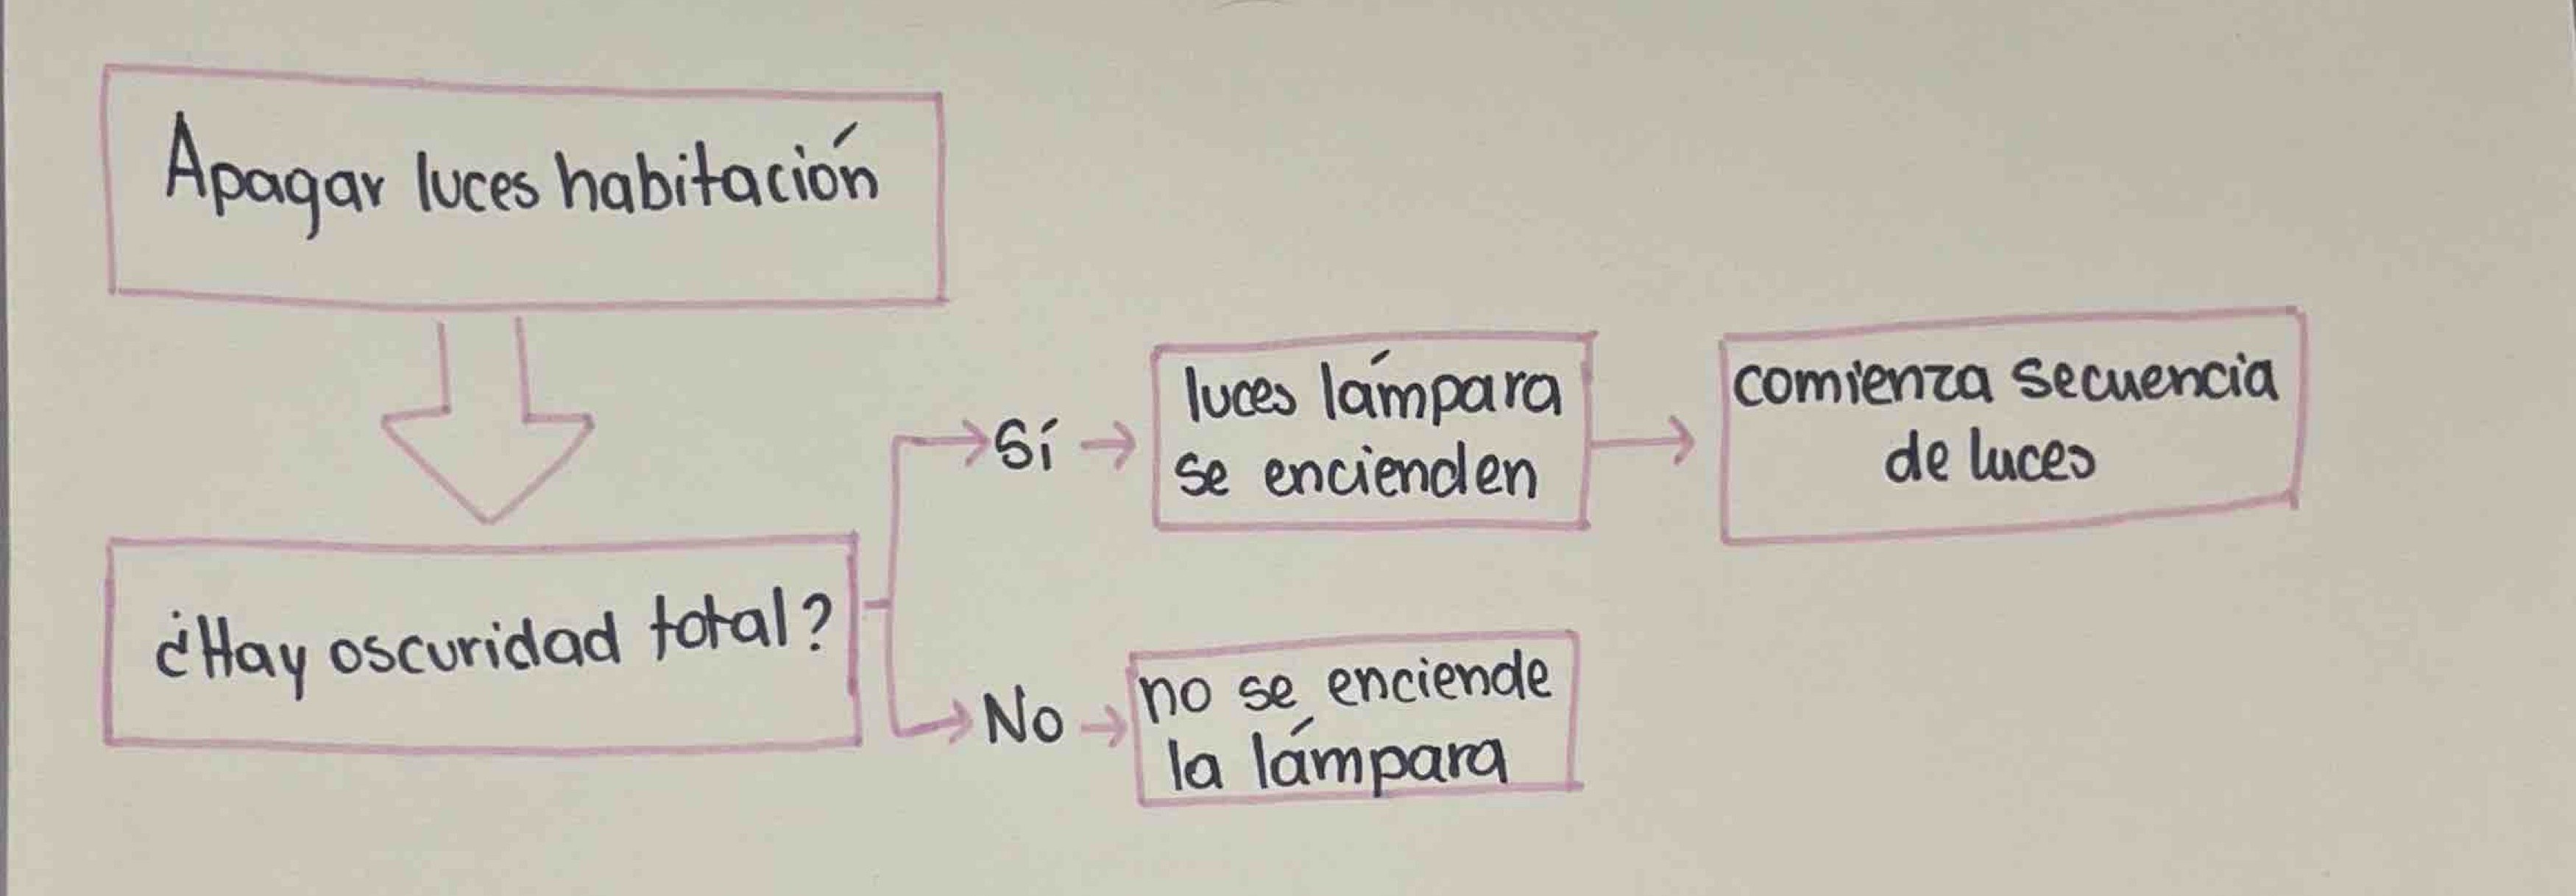 Apagar luces habitación
¿Hay oscuridad total?
Sí
luces lámpara
se encienden
comienza secuencia
de luces
No
no se enciende
la lámpara